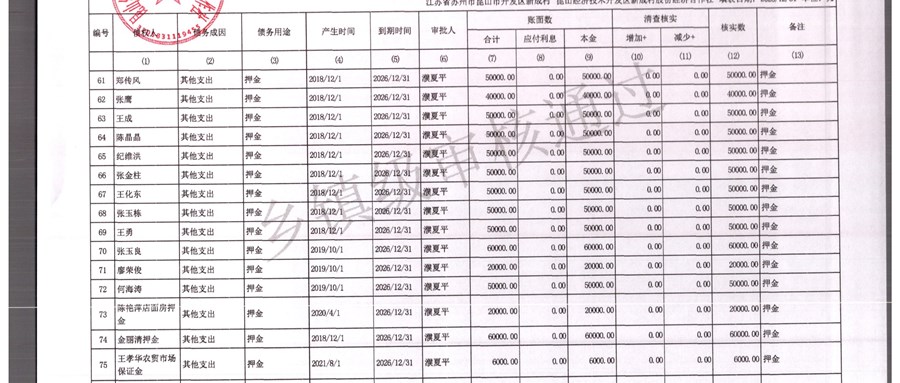 江苏省苏州市昆山市开发区新成村 昆山经济技术开发区新成村股份经济合作社
编号 债权人 债务成因 债务用途 产生时间 到期时间 审批人 账面数 清查核实 核实数 备注
合计 应付利息 本金 增加+ 减少+
(1) (2) (3) (4) (5) (6) (7) (8) (9) (10) (11) (12) (13)
61 郑传风 其他支出 押金 2018/12/1 2026/12/31 濮夏平 50000.00 0.00 50000.00 0.00 0.00 50000.00 押金
62 张鹰 其他支出 押金 2018/12/1 2026/12/31 濮夏平 40000.00 0.00 40000.00 0.00 0.00 40000.00 押金
63 王成 其他支出 押金 2018/12/1 2026/12/31 濮夏平 50000.00 0.00 50000.00 0.00 0.00 50000.00 押金
64 陈晶晶 其他支出 押金 2018/12/1 2026/12/31 濮夏平 50000.00 0.00 50000.00 0.00 0.00 50000.00 押金
65 纪维洪 其他支出 押金 2018/12/1 2026/12/31 濮夏平 50000.00 0.00 50000.00 0.00 0.00 50000.00 押金
66 张金柱 其他支出 押金 2018/12/1 2026/12/31 濮夏平 50000.00 0.00 50000.00 0.00 0.00 50000.00 押金
67 王化东 其他支出 押金 2018/12/1 2026/12/31 濮夏平 50000.00 0.00 50000.00 0.00 0.00 50000.00 押金
68 张玉栋 其他支出 押金 2018/12/1 2026/12/31 濮夏平 50000.00 0.00 50000.00 0.00 0.00 50000.00 押金
69 王勇 其他支出 押金 2018/12/1 2026/12/31 濮夏平 50000.00 0.00 50000.00 0.00 0.00 50000.00 押金
70 张玉良 其他支出 押金 2019/10/1 2026/12/31 濮夏平 60000.00 0.00 60000.00 0.00 0.00 60000.00 押金
71 廖荣俊 其他支出 押金 2019/10/1 2026/12/31 濮夏平 20000.00 0.00 20000.00 0.00 0.00 20000.00 押金
72 何海涛 其他支出 押金 2019/10/1 2026/12/31 濮夏平 50000.00 0.00 50000.00 0.00 0.00 50000.00 押金
73 陈艳萍店面房押金 其他支出 押金 2020/4/1 2026/12/31 濮夏平 20000.00 0.00 20000.00 0.00 0.00 20000.00 押金
74 金丽清押金 其他支出 押金 2018/12/1 2026/12/31 濮夏平 60000.00 0.00 60000.00 0.00 0.00 60000.00 押金
75 王孝华农贸市场保证金 其他支出 押金 2021/8/1 2026/12/31 濮夏平 6000.00 0.00 6000.00 0.00 0.00 6000.00 押金
乡镇级审核通过